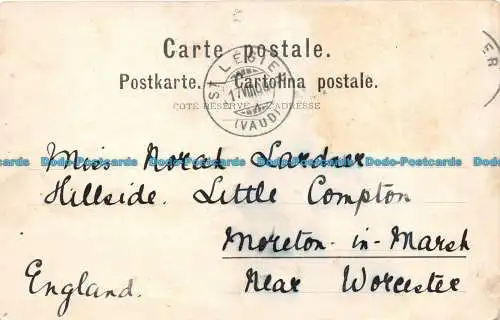 Carte postale.
Postkarte. Cartolina postale.
COTÉ RÉSERVÉ A L'ADRESSE
ST LÉGIER
17 VIII
(VAUD)
ER
Dodo-Postcards Dodo-Postcards Dodo-Postcards Dodo-Postcards
Miss Lardner
Hillside. Little Compton
Moreton-in-Marsh
England. Near Worcester
Dodo-Postcards Dodo-Postcards Dodo-Postcards Dodo-Postcards